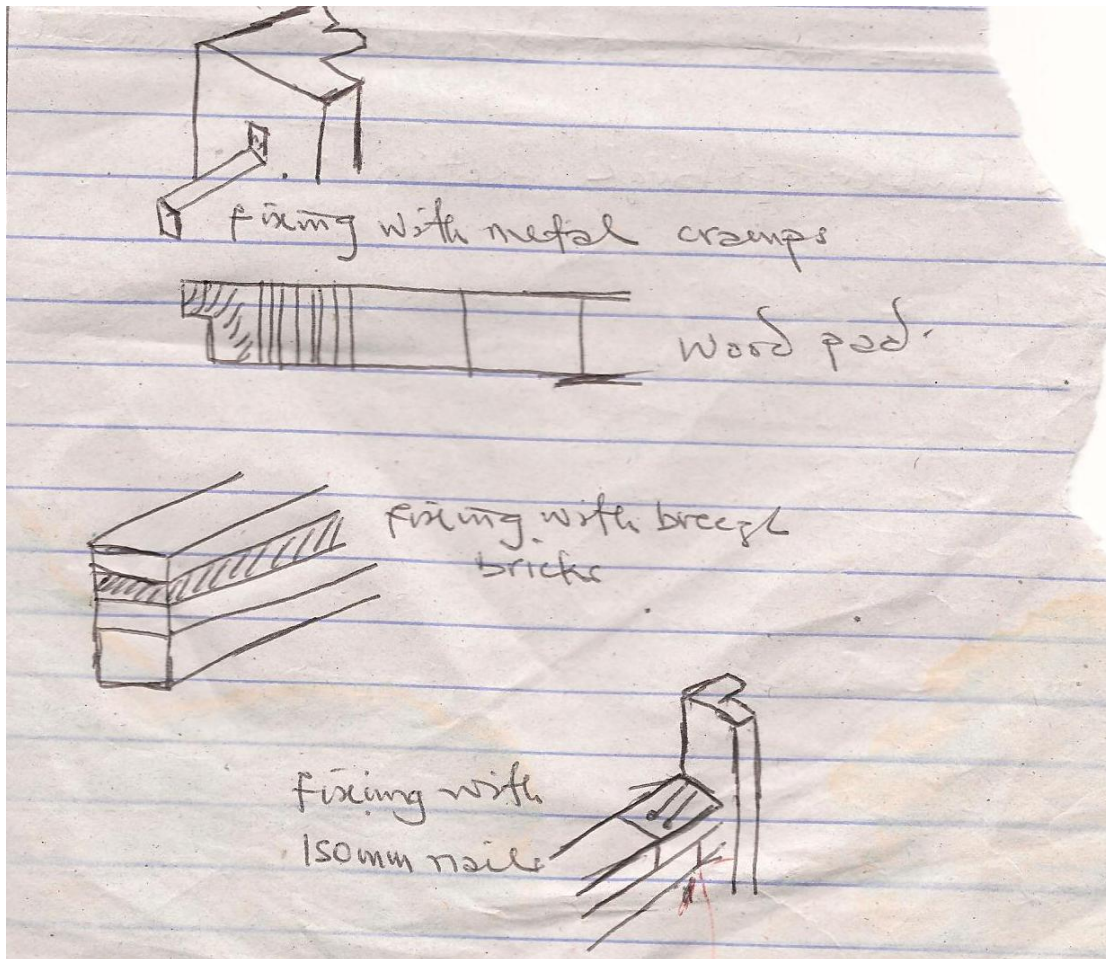 fixing with metal cramps
Wood pad.
fixing with breeze
bricks
fixing with
150mm nails